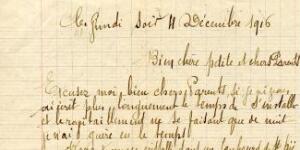 Lundi Soir 11 Décembre 1916
Bien chère petite et chers Parents
Excusez moi bien chers Parents, si je ne vous
ai écrit plus longuement le temps de s'installé
et le ravitaillement ne se faisant que de nuit
je n'ai guère eu le temps